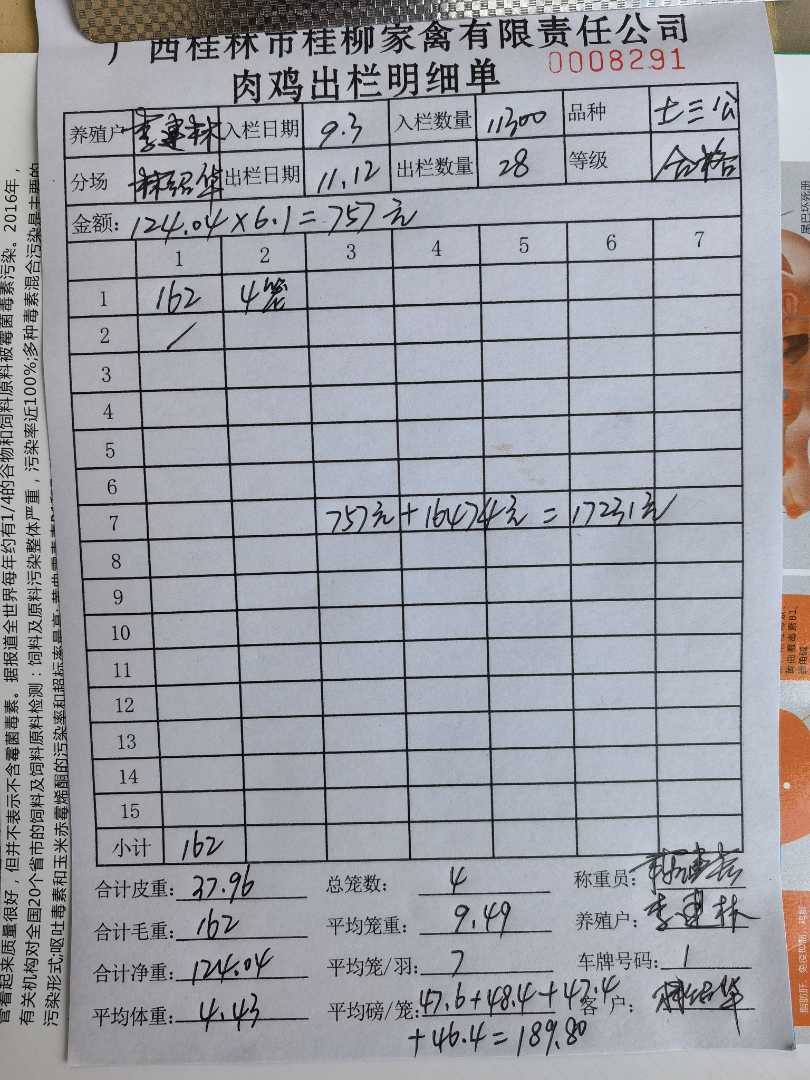 广西桂林市桂柳家禽有限责任公司
肉鸡出栏明细单 0008291
养殖户 李建林 入栏日期 9.3 入栏数量 11300 品种 土三公
分场 林绍华 出栏日期 11.12 出栏数量 28 等级 合格
金额: 124.04×6.1=757元
1 2 3 4 5 6 7
1 162 4笼
2 /
3
4
5
6
7 757元+16474元=17231元
8
9
10
11
12
13
14
15
小计 162
合计皮重: 37.96 总笼数: 4 称重员:
合计毛重: 162 平均笼重: 9.49 养殖户: 李建林
合计净重: 124.04 平均笼/羽: 7 车牌号码: 1
平均体重: 4.43 平均磅/笼: 47.6+48.4+47.4 客户: 林绍华
+46.4=189.80
管看起来质量很好，但并不表示不含霉菌毒素。据报道全世界每年约有1/4的谷物和饲料原料被霉菌毒素污染。2016年，
有关机构对全国20个省市的饲料及饲料原料检测：饲料及原料污染整体严重，污染率近100%;多种毒素混合污染是主要的
污染形式;呕吐毒素和玉米赤霉烯酮的污染率和超标率最高;